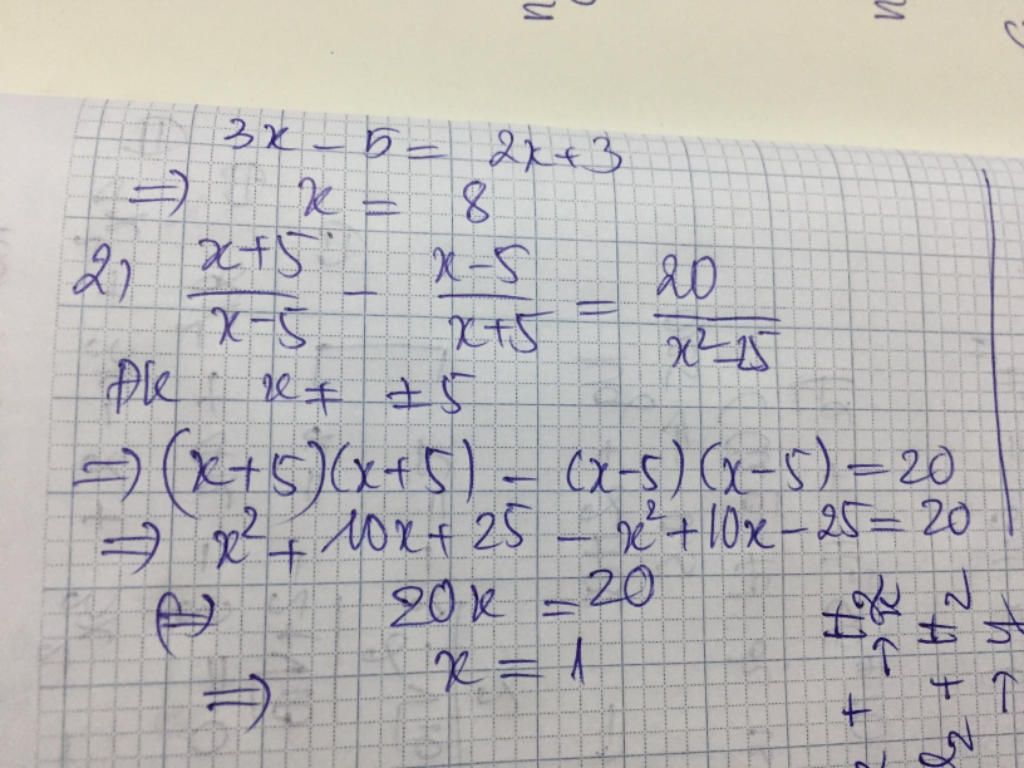 3x - 5 = 2x + 3
=> x = 8
2) (x+5)/(x-5) - (x-5)/(x+5) = 20/(x²-25)
ĐK x ≠ ±5
=> (x+5)(x+5) - (x-5)(x-5) = 20
=> x² + 10x + 25 - x² + 10x - 25 = 20
<=> 20x = 20
=> x = 1